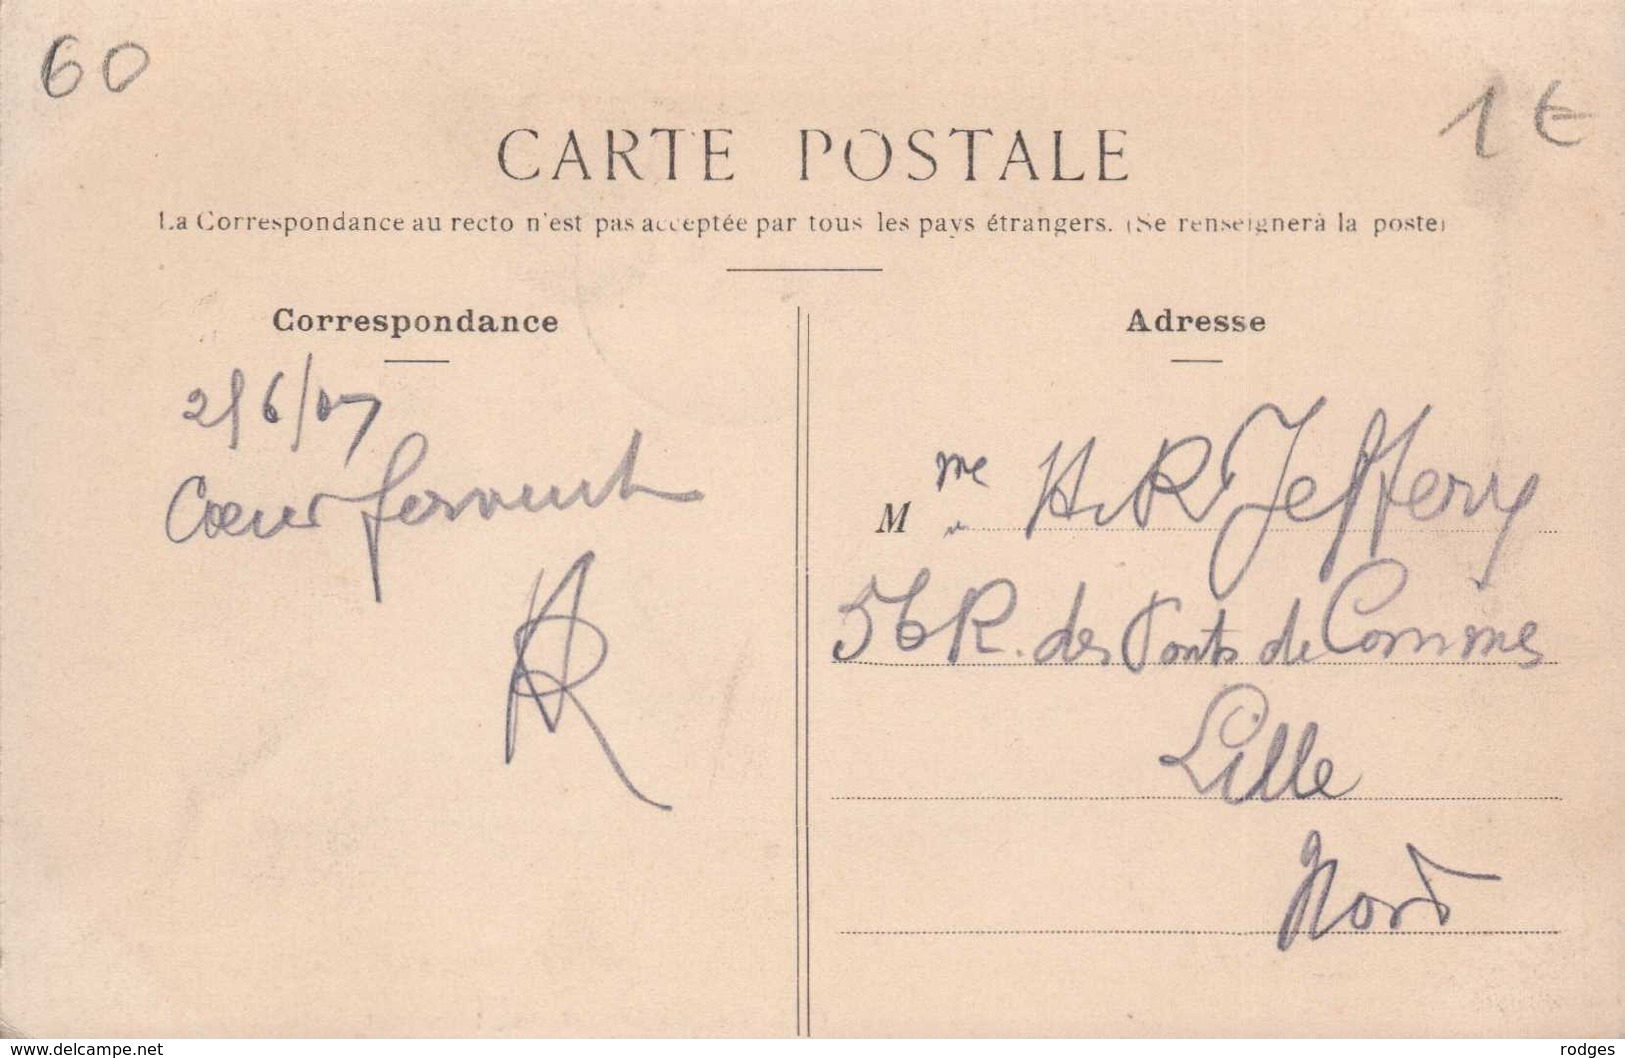 60
1€
CARTE POSTALE
La Correspondance au recto n'est pas acceptée par tous les pays étrangers. (Se renseigner à la poste)
Correspondance
2/6/07
Cœur fervent
AR
Adresse
Mme H. R Jeffery
56 R. des Ponts de Comines
Lille
Nord
www.delcampe.net
rodges